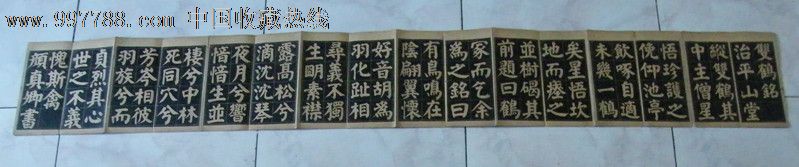 www.997788.com 中国收藏热线
雙鶴銘
治平山堂
縱雙鶴其
中主僧星
悟珍護之
俛仰池亭
飲啄自適
未幾一鶴
矣星悟坎
地而瘞之
並樹碣其
前題曰鶴
冢而乞余
為之銘曰
有鳥鳴在
陰翩翼懷
好音胡為
羽化趾相
尋義不獨
生明素襟
露高松兮
滴沈沈琴
夜月兮響
愔愔生並
棲兮中林
死同穴兮
芳岑相彼
羽族兮而
貞烈其心
世之不義
愧斯禽
顏真卿書